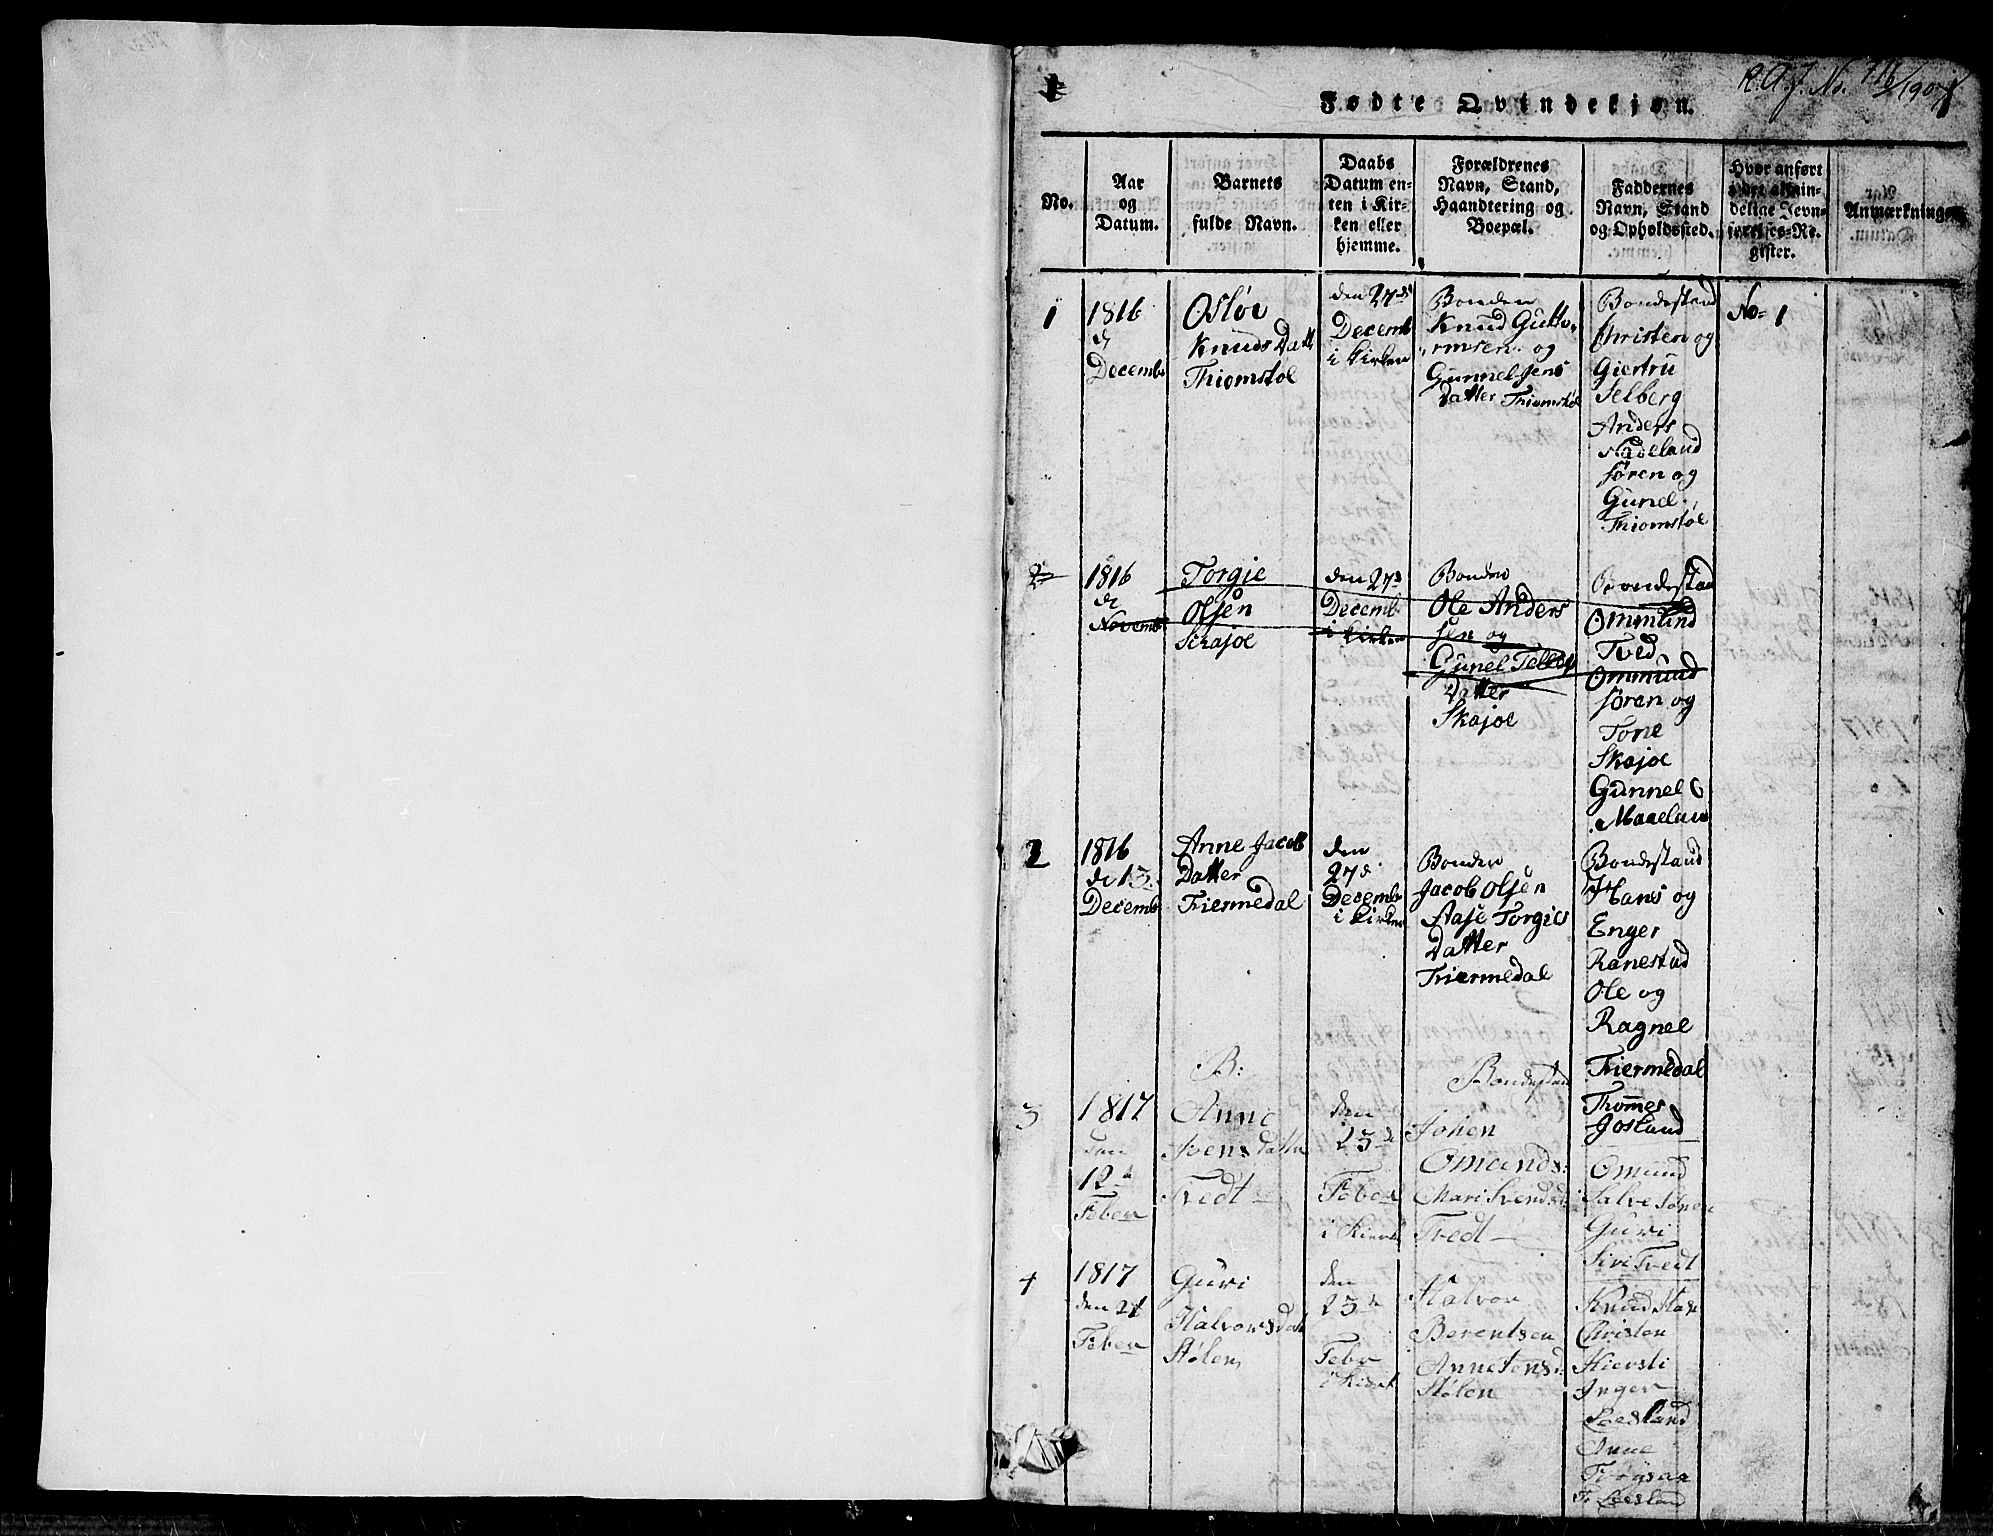 1
R.A.J. No. 716/1907
Fødte Qvindekjøn.
No.
Aar
og
Datum.
Barnets
fulde Navn.
Daabs
Datum en-
ten i Kir-
ken eller
hjemme.
Forældrenes
Navn, Stand,
Haandtering og
Boepæl.
Faddernes
Navn, Stand
og Opholdssted.
Hvor anført
i det almin-
delige Jevn-
førelses-Re-
gister.
Anmærkninger
1
1816
d
Decemb
Osløe
Knuds Datt
Thiomstøl
den 27de
Decemb
i Kirken
Bonden
Knud Gutto-
rmsen og
Gunnel Jens
Datter Thiomstøl
Bondestand
Christen og
Giertru
Selberg
Anders
Hadeland
Søren og
Gunel
Thiomstøl
No 1
2
1816
de
Novemb
Torgje
Olsen
Skajoe
den 27de
Decemb
i Kirken
Bonden
Ole Anders
sen og
Gunel Tellefs
Datter
Skajoe
Bondestand
Ommund
Tved
Ommund
Søren og
Tone
Skajoe
Gunnel
2
1816
de 13
Decemb
Anne Jacob
Datter
Triermedal
den
27de
Decemb
i Kirken
Bonden
Jacob Olsen
Aase Torgies
Datter
Triermedal
Bondestand
Hans og
Enger
Ranestad
Ole og
Ragnel
Triermedal
Thomes
Josland
3
1817
den
12te
Feber
B:
Anne
Tvedt
den
25de
Feber
i Kierk
Bondestan
Johen
Omunds:
Mari Svendsd:
Tvedt
Omund
Salve Søren
Guri
Siri Tvedt
4
1817
den 21
Feber
Guri
Halvorsdatt
Stølen
den
25de
Feber
i Kierk
Halvor
Berentsen
Anne Jensd:
Stølen
Knud
Christen
Kiersti
Inger
Anne